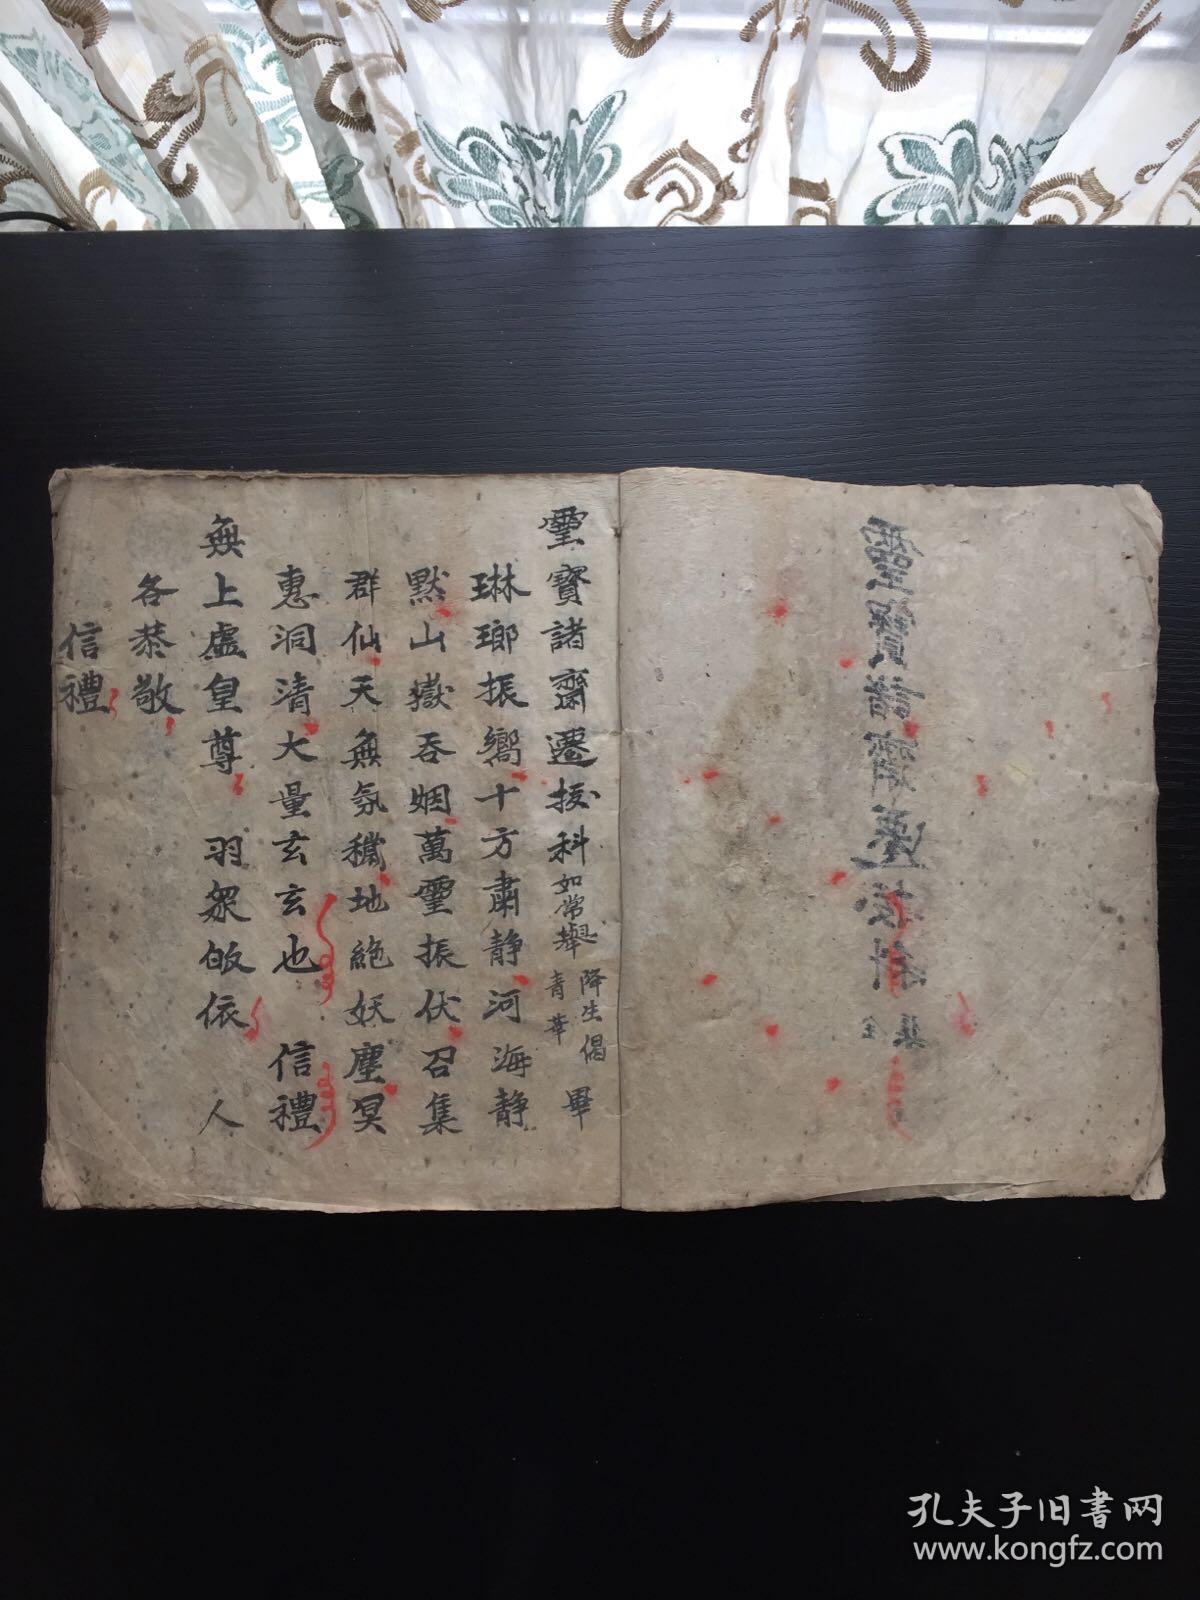 靈寶諸齋遷拔科
全集
靈寶諸齋遷拔科如常舉 降生偈 青華 畢
琳瑯振嚮十方肅静河海静
默山嶽吞烟萬靈振伏召集
群仙天無氛穢地絶妖塵冥
惠洞清大量玄玄也 信禮
無上虛皇尊 羽衆皈依 人
各恭敬
信禮
孔夫子旧书网
www.kongfz.com